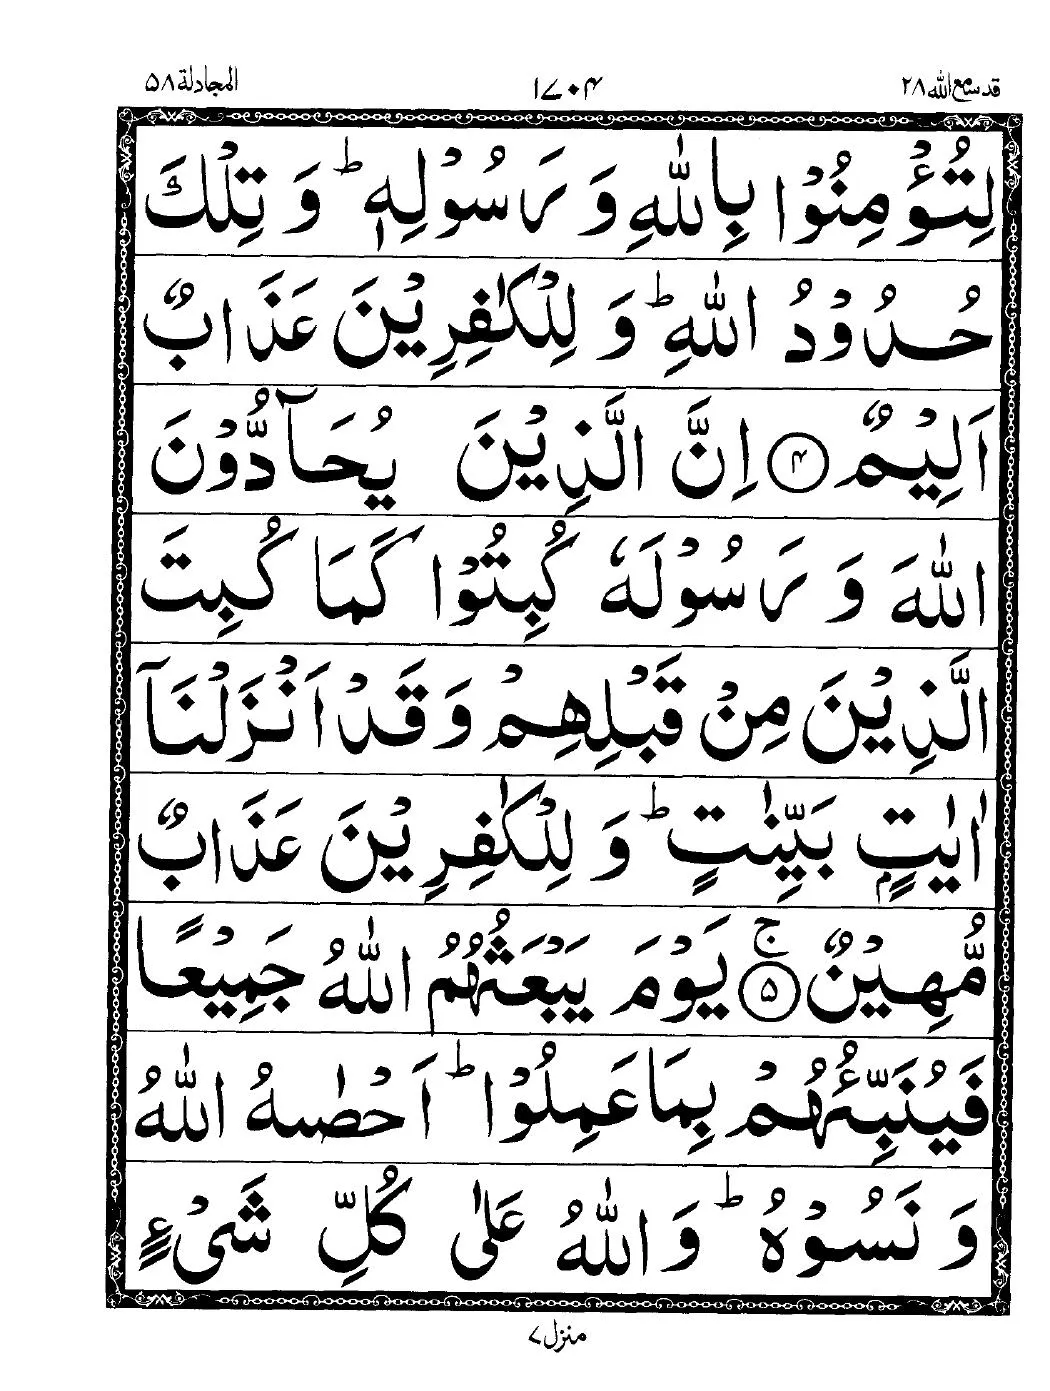 قد سمع الله ۲۸ ۱۷۰۴ المجادلة ۵۸
لِتُؤْمِنُوْا بِاللّٰهِ وَ رَسُوْلِهٖ ؕ وَ تِلْكَ
حُدُوْدُ اللّٰهِ ؕ وَ لِلْكٰفِرِيْنَ عَذَابٌ
اَلِيْمٌ ۴ اِنَّ الَّذِيْنَ يُحَآدُّوْنَ
اللّٰهَ وَ رَسُوْلَهٗ كُبِتُوْا كَمَا كُبِتَ
الَّذِيْنَ مِنْ قَبْلِهِمْ وَ قَدْ اَنْزَلْنَاۤ
اٰيٰتٍۭ بَيِّنٰتٍ ؕ وَ لِلْكٰفِرِيْنَ عَذَابٌ
مُّهِيْنٌ ۵ ۚ يَوْمَ يَبْعَثُهُمُ اللّٰهُ جَمِيْعًا
فَيُنَبِّئُهُمْ بِمَا عَمِلُوْا ؕ اَحْصٰىهُ اللّٰهُ
وَ نَسُوْهُ ؕ وَ اللّٰهُ عَلٰى كُلِّ شَيْءٍ
منزل ۷